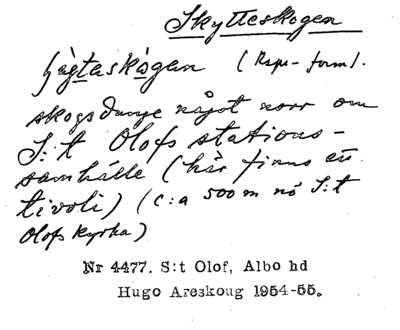 Skytteskogen
(Repr-form).
skogsdunge något norr om
S:t Olofs stations-
samhälle (här finns ett
tivoli) (c:a 500 m nö S:t
Olofs kyrka)
Nr 4477. S:t Olof, Albo hd
Hugo Areskoug 1954-55.